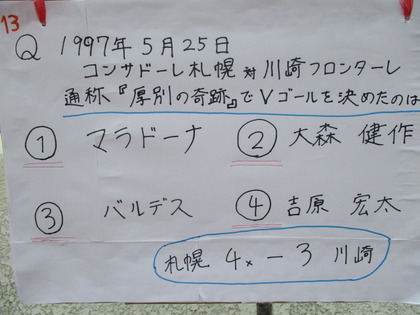 13
Q 1997年5月25日
コンサドーレ札幌 対 川崎フロンターレ
通称『厚別の奇跡』でVゴールを決めたのは
① マラドーナ ② 大森 健作
③ バルデス ④ 吉原 宏太
札幌 4x－3 川崎